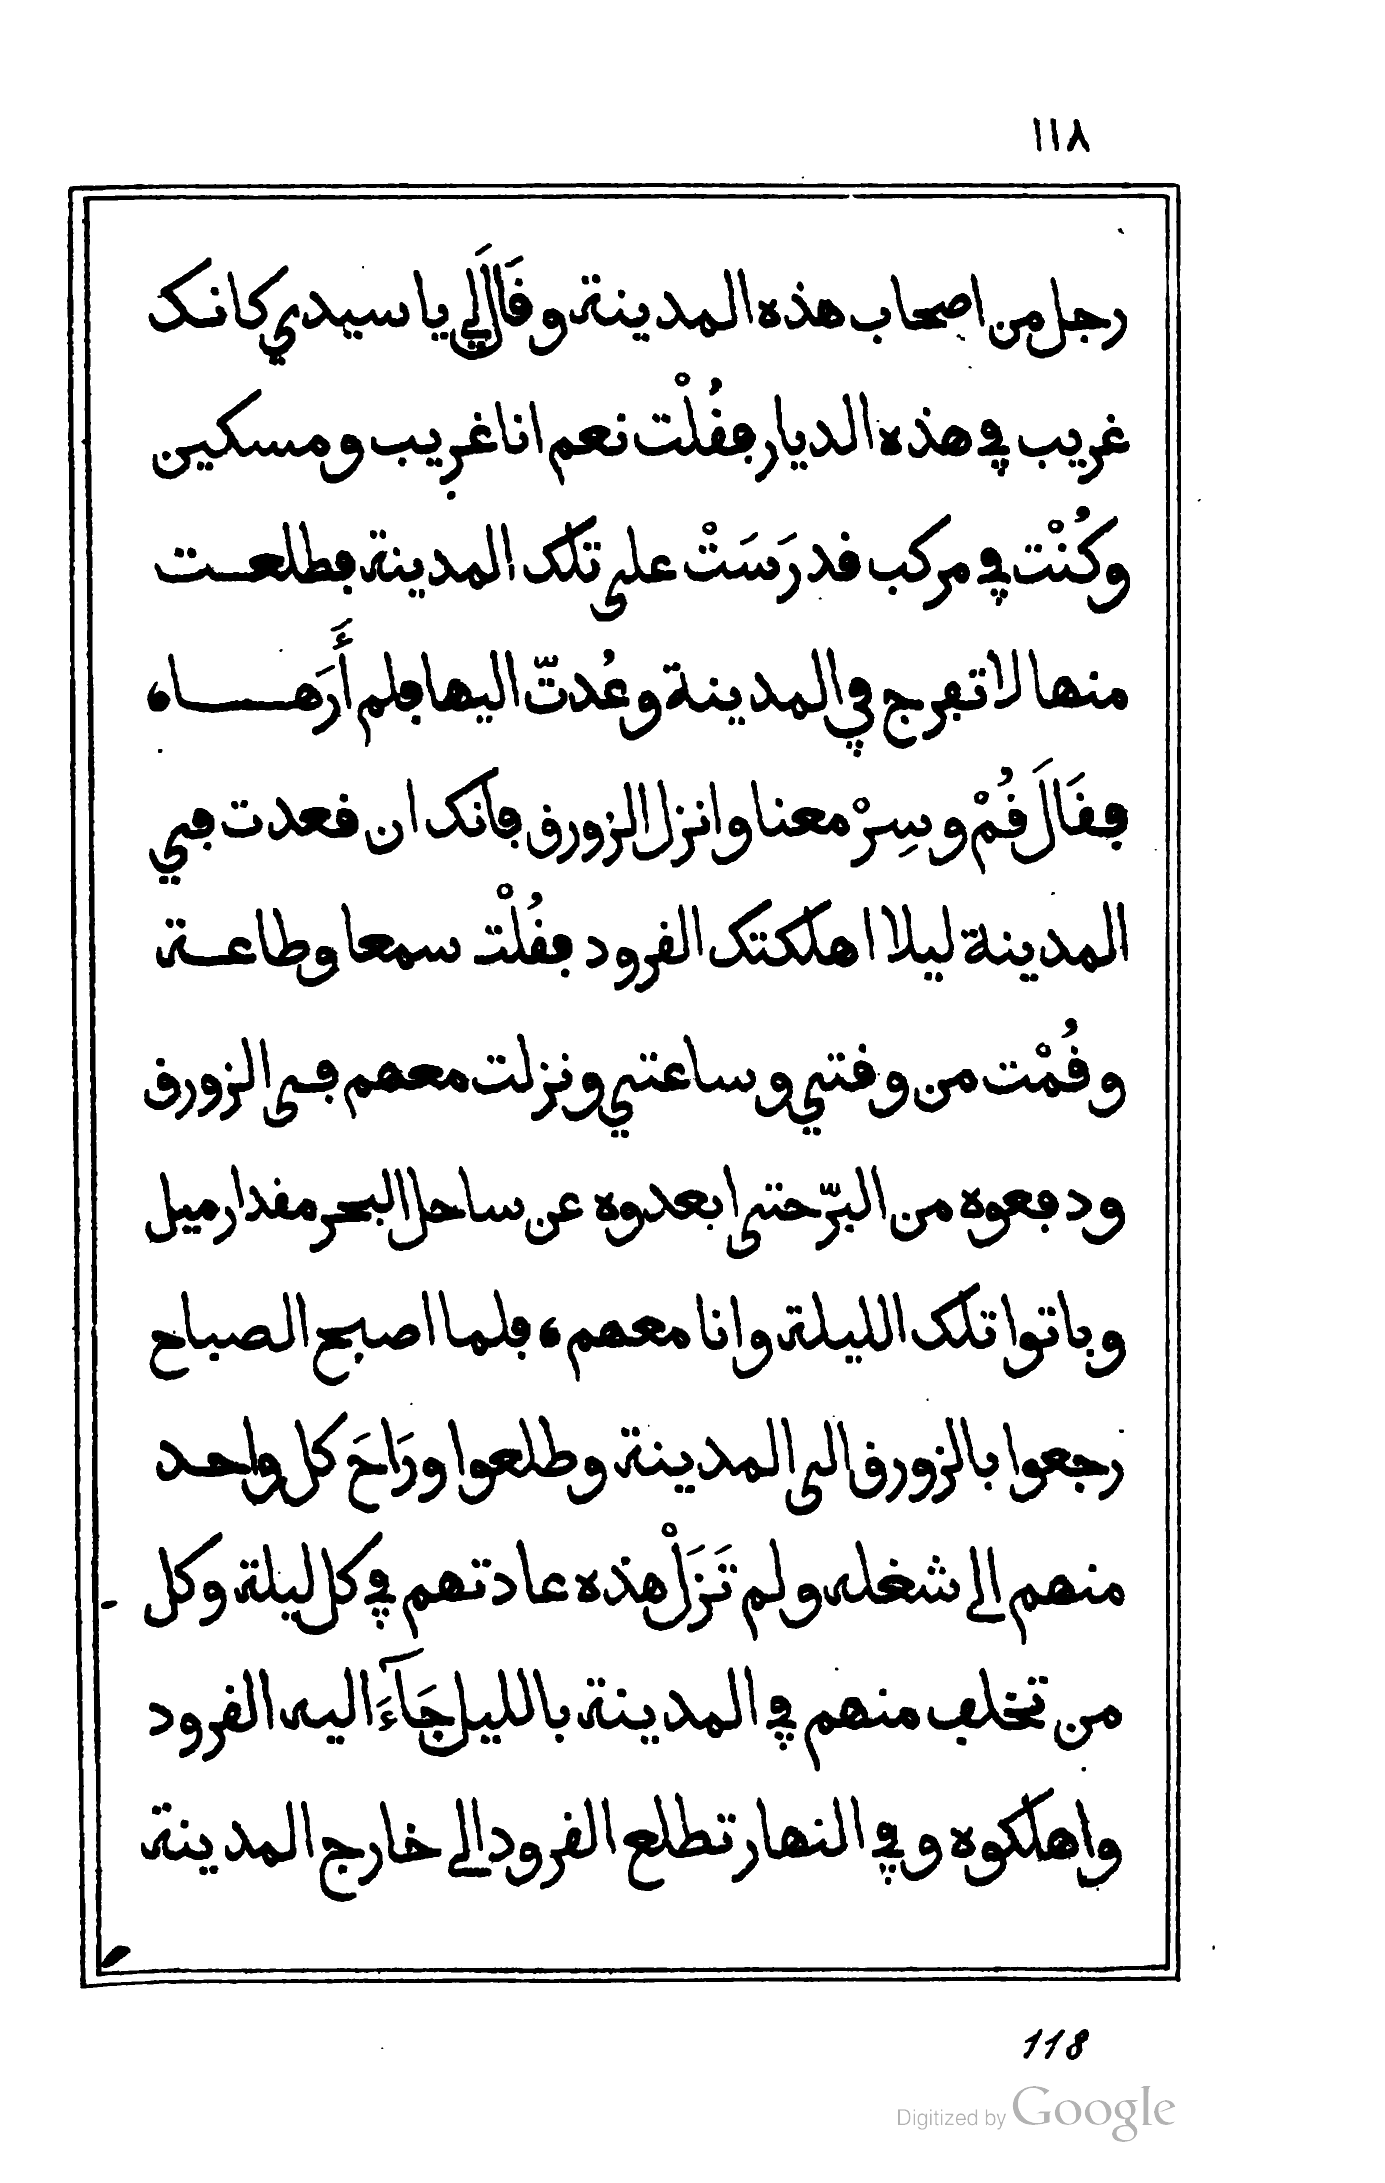 ١١٨
رجل من اصحاب هذه المدينة وقَالَ لي يا سيدي كانك
غريب في هذه الديار فقُلْت نعم انا غريب ومسكين
وكُنْت في مركب قد رَسَتْ على تلك المدينة فطلعت
منها لاتفرج في المدينة وعُدتّ اليها فلم أَرَهاه
فقَالَ قُمْ وسِرْ معنا وانزل الزورق فانك ان قعدت في
المدينة ليلا اهلكتك القرود فقُلْت سمعا وطاعة
وقُمْت من وقتي وساعتي ونزلت معهم في الزورق
ودفعوه من البرّ حتى ابعدوه عن ساحل البحر مقدار ميل
وباتوا تلك الليلة وانا معهم، فلما اصبح الصباح
رجعوا بالزورق الى المدينة وطلعوا ورَاحَ كل واحد
منهم الى شغله ولم تَزَلْ هذه عادتهم في كل ليلة وكل
من تخلف منهم في المدينة بالليل جَآءَ اليه القرود
واهلكوه وفي النهار تطلع القرود الى خارج المدينة
118
Digitized by Google